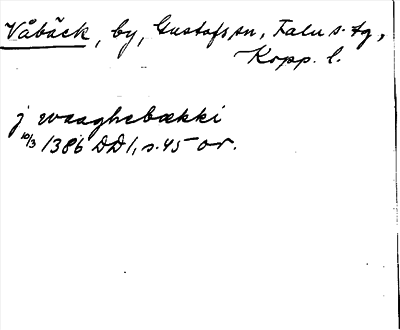 Våbäck, by, Gustafs sn, Falu s. tg,
Kopp. l.
j waaghebækki
10/3 1386 DD 1, s. 45 or.